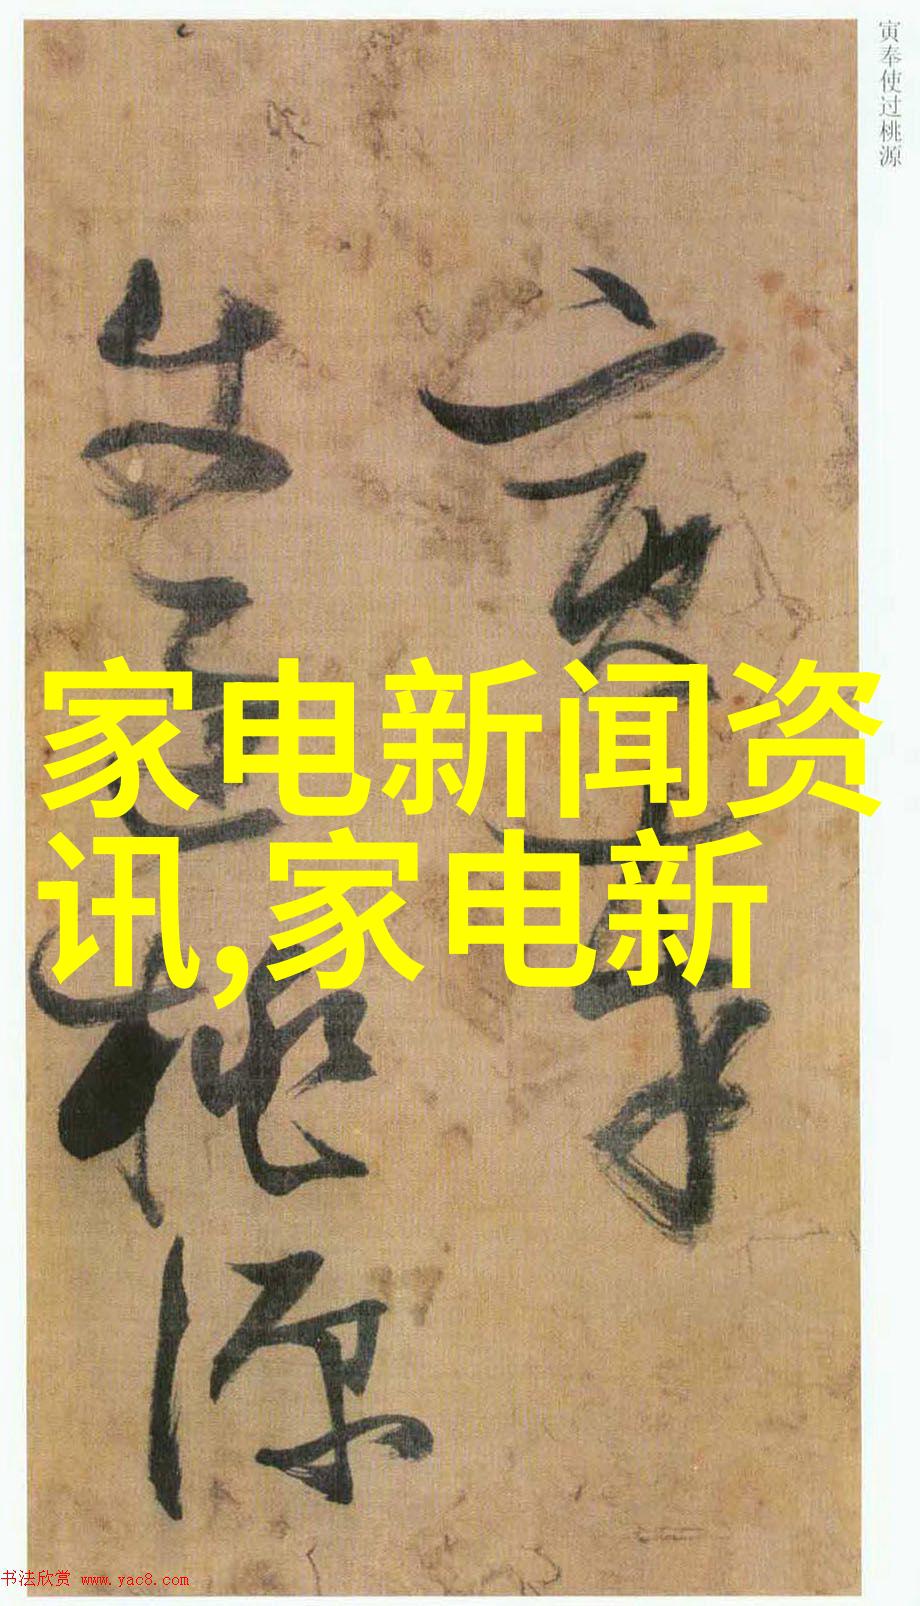 寅奉使过桃源
寅奉
使过桃源
家电新闻资
讯,家电新
书法欣赏 www.yac8.com